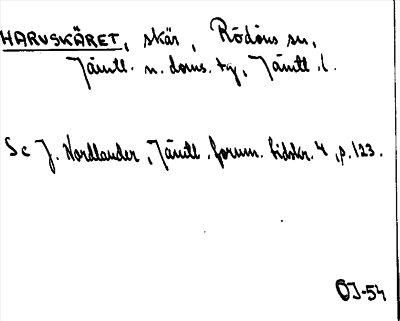 HARVSKÄRET, skär, Rödöns sn,
Jämtl. n. doms. tg, Jämtl. l.
Se J. Nordlander, Jämtl. fornm. tidskr. 4, p. 123.
OJ-54